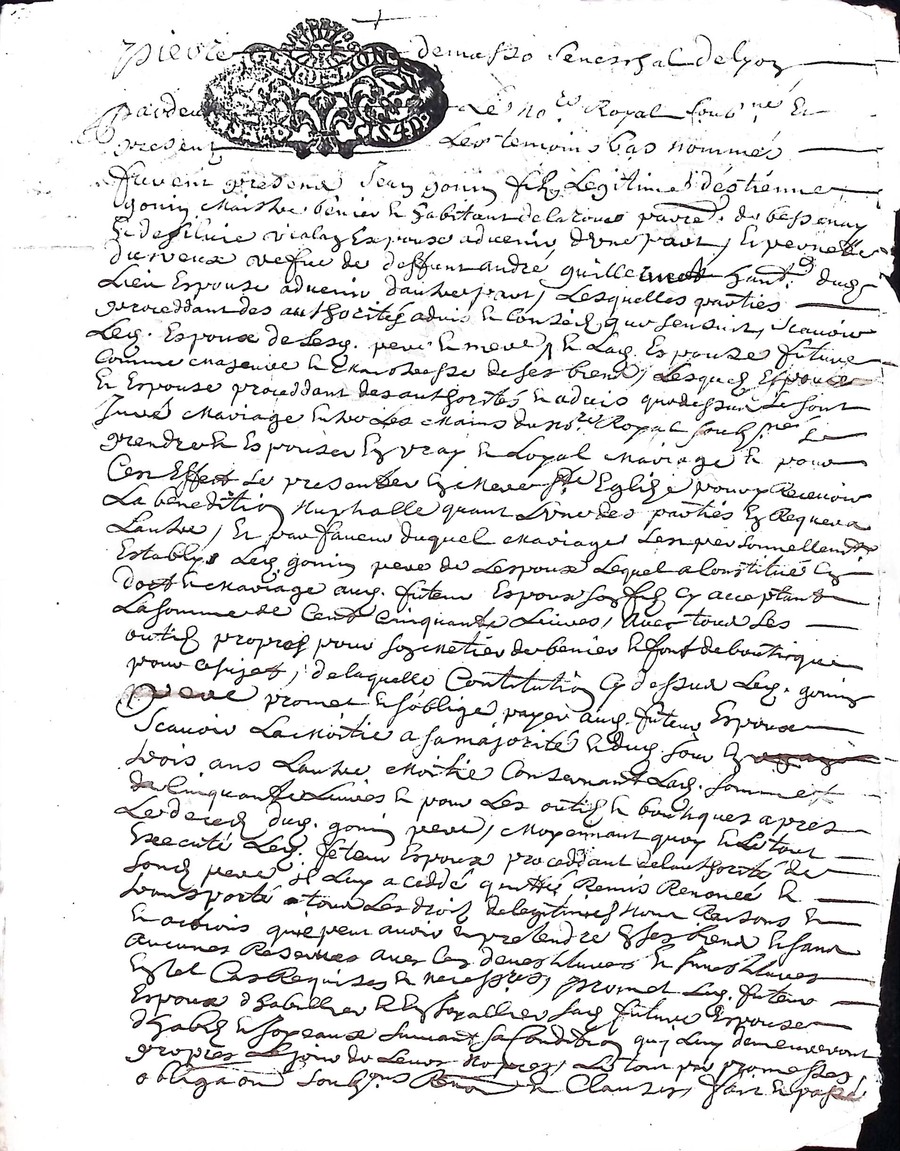 pierre demasso seneschal de lyon
GEN DE LYON
pardeu Le no.re Royal soub.né Et
present Les temoins bas nommés
furent present Jean gonin filz Legitime d'éstienne
gonin Maistre benier et habitant de la roue parre. de bessenay
Et de silvie Espouse aduenir d'une part, Et pernette
duveux vefue de deffunt andré guillermet hant. dug.
Lieu Espouse aduenir d'autre part, Lesquelles parties
proceddant des authorités aduis et Conseil que sensuit, scauoir
Leq. Espoux de Lesq. pere et mere, et Laq. Espouse future
Comme majeure et Maistresse de ses biens, Lesquels Espoux
Et Espouse proceddant des authorités et aduis que dessus se sont
Juré Mariage Entre Les Mains du no.re Royal soub.né se
prendre et Espouser En vray et Loyal Mariage et pour
Cest Effect se presenter En n.re mere s.te Eglize pour y Receuoir
La bénédiction Nuptialle quant L'une des parties En Requera
L'autre, Et par faueur duquel Mariage s'est personnellement
Estably Leq. gonin pere de L'espoux Lequel a Constitué En
dost et Mariage aug. futeur Espoux son filz Cy acceptant
La somme de Cent Cinquante Liures, Auec tous Les
outilz propres pour son metier de benier et font de boutique
pour a sujet, de laquelle Constitution Cy dessus Leq. gonin
pere promet et s'oblige payer aug. futeur Espoux
Scauoir La Moitie a sa majorité et dug. Jour En
trois ans L'autre Moitie Conseruant Laq. somme
de Cinquante Liures et pour Les outilz et boutiques apres
Le deced dug. gonin pere, Moyennant quoy et Le tout
Executé Leq. futeur Espoux proceddant de l'authorité de
sond. pere il Luy a ceddé quitté Remis Renoncé et
transporté tous Les droitz de legitimes Noms Raisons et
et actions que peut auoir et pretendre En ses biens Et sans
aucunes Reserues auec Les deues Clauses
En tel Cas Requises et necessres, promet Leq. futeur
Espoux d'habiller et En Joyaller Laq. future Espouse
d'habitz et Joyeaux suiuant sa Condition qui Luy demeureront
propres Le Jour de Leurs Nopces, Le tout par promesses
obligaon soubz.ons Renon et Clauses, fait et passé